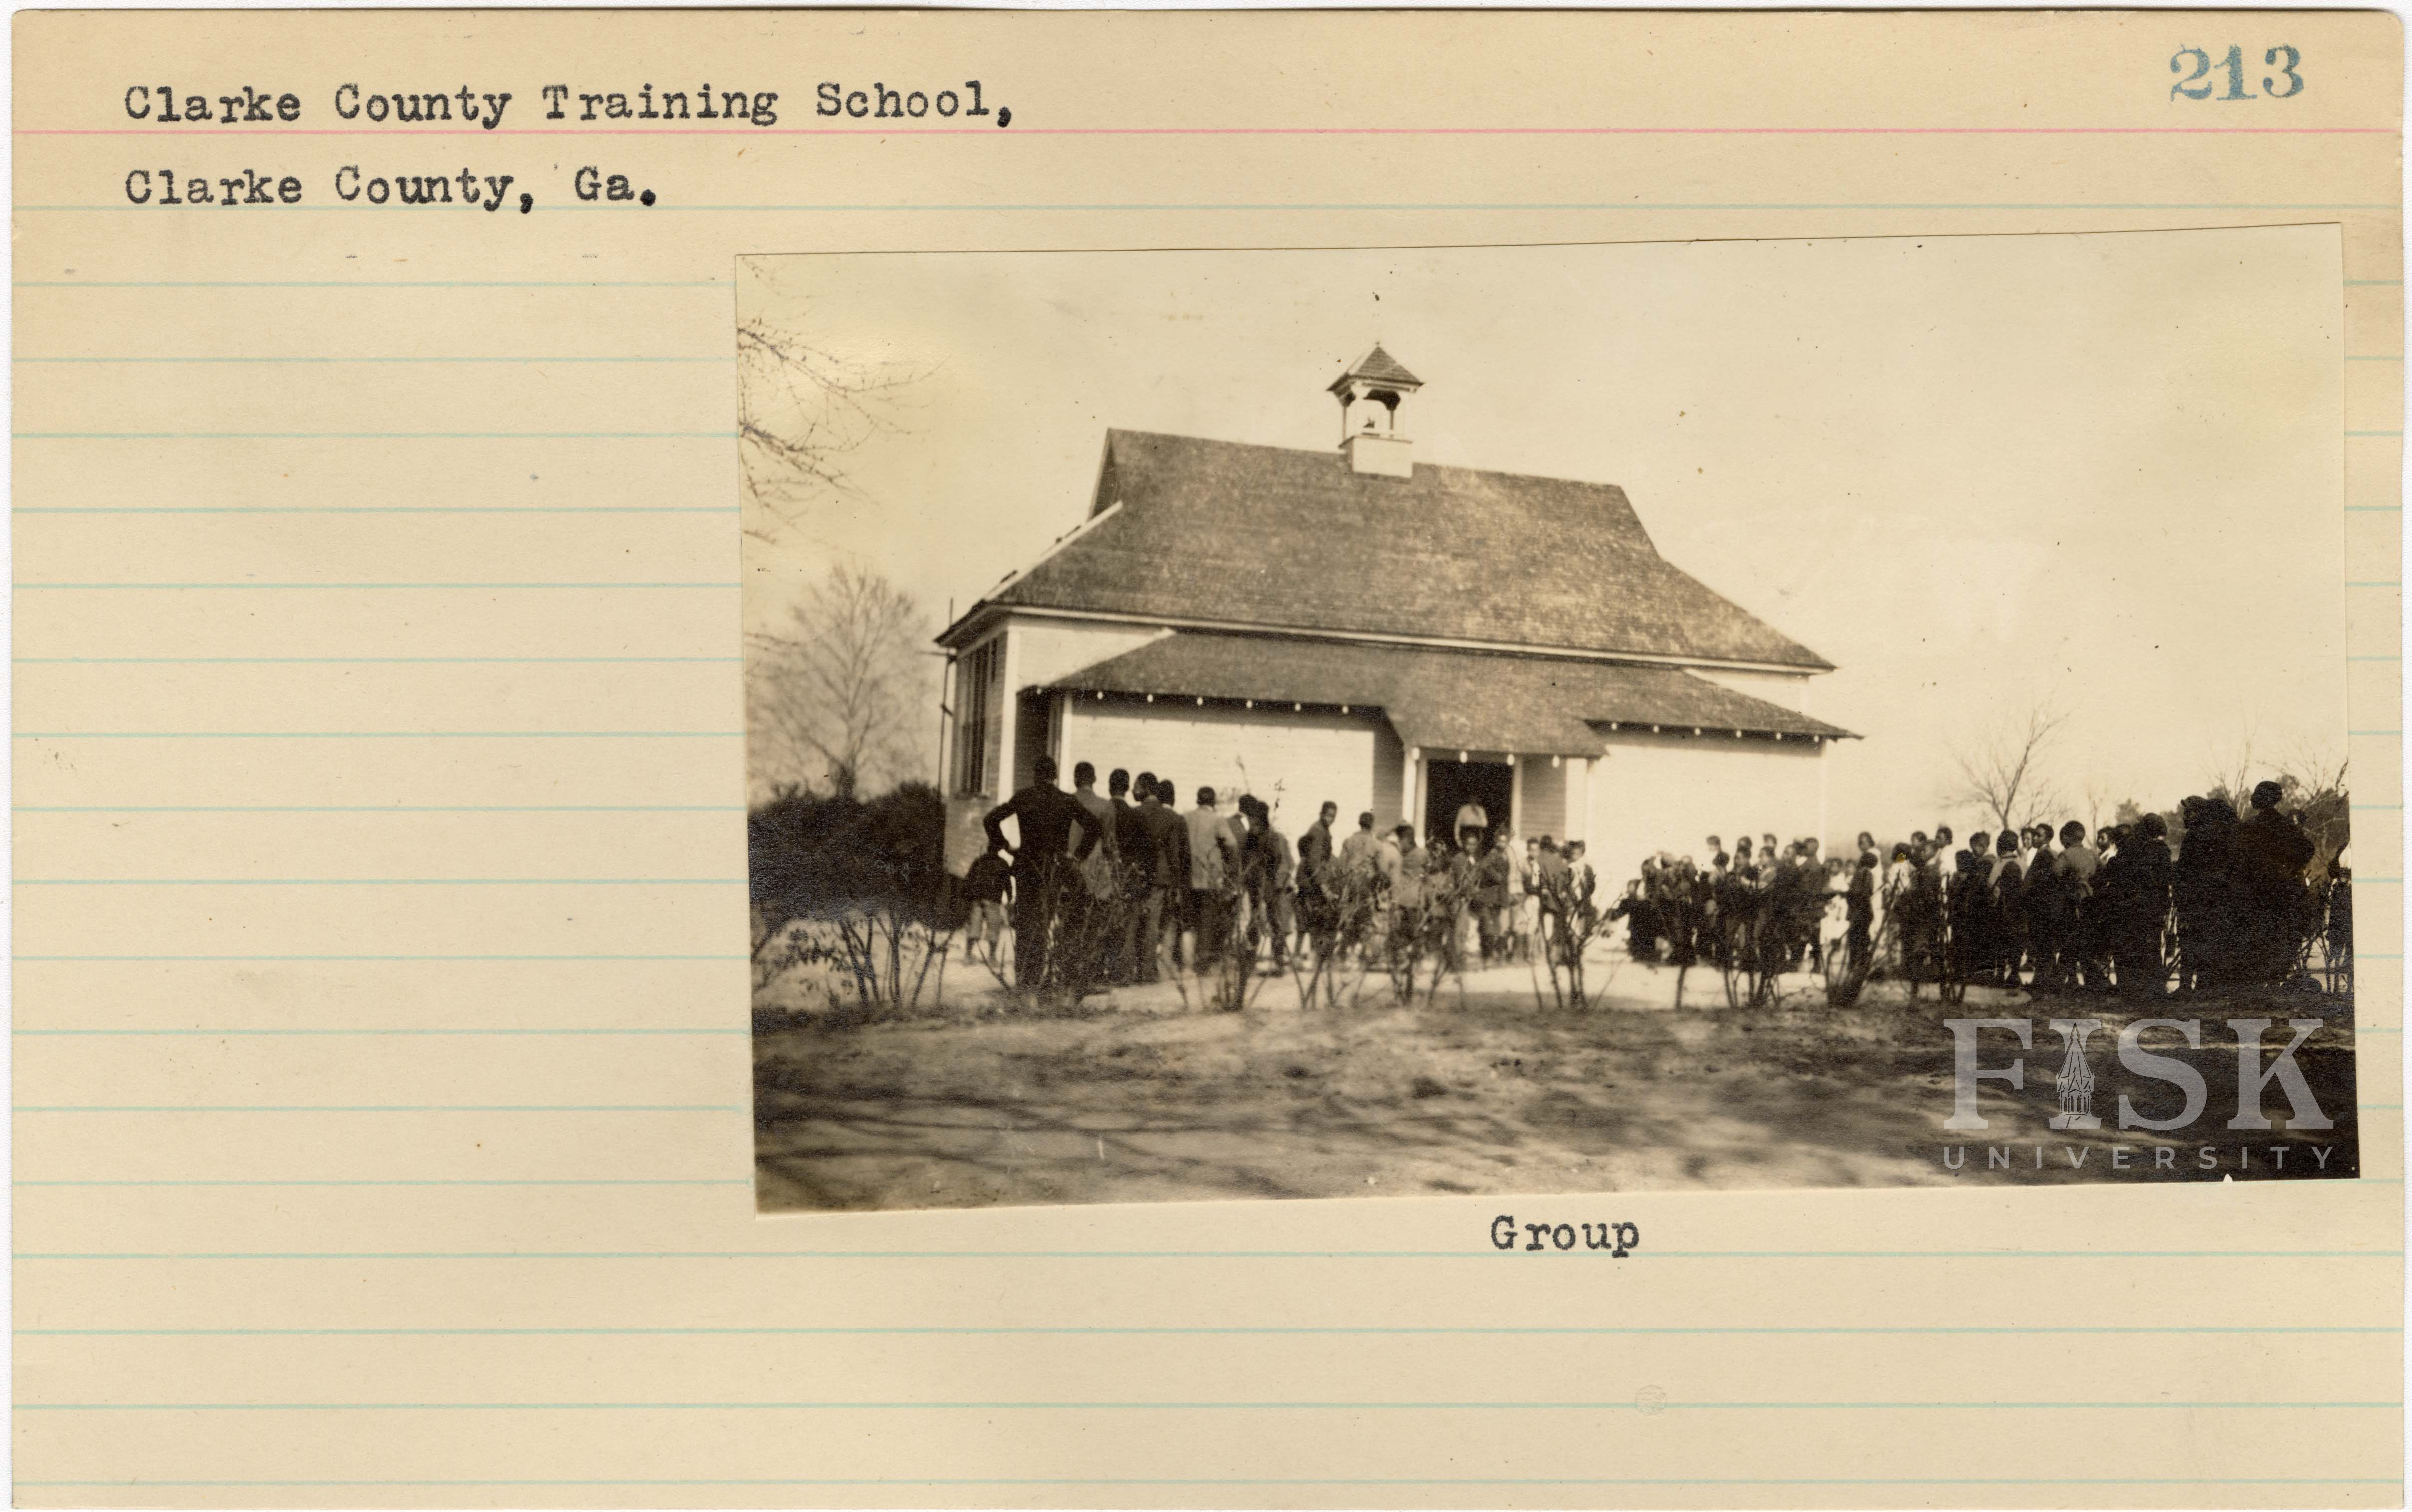 213
Clarke County Training School,
Clarke County, Ga.
FISK
UNIVERSITY
Group